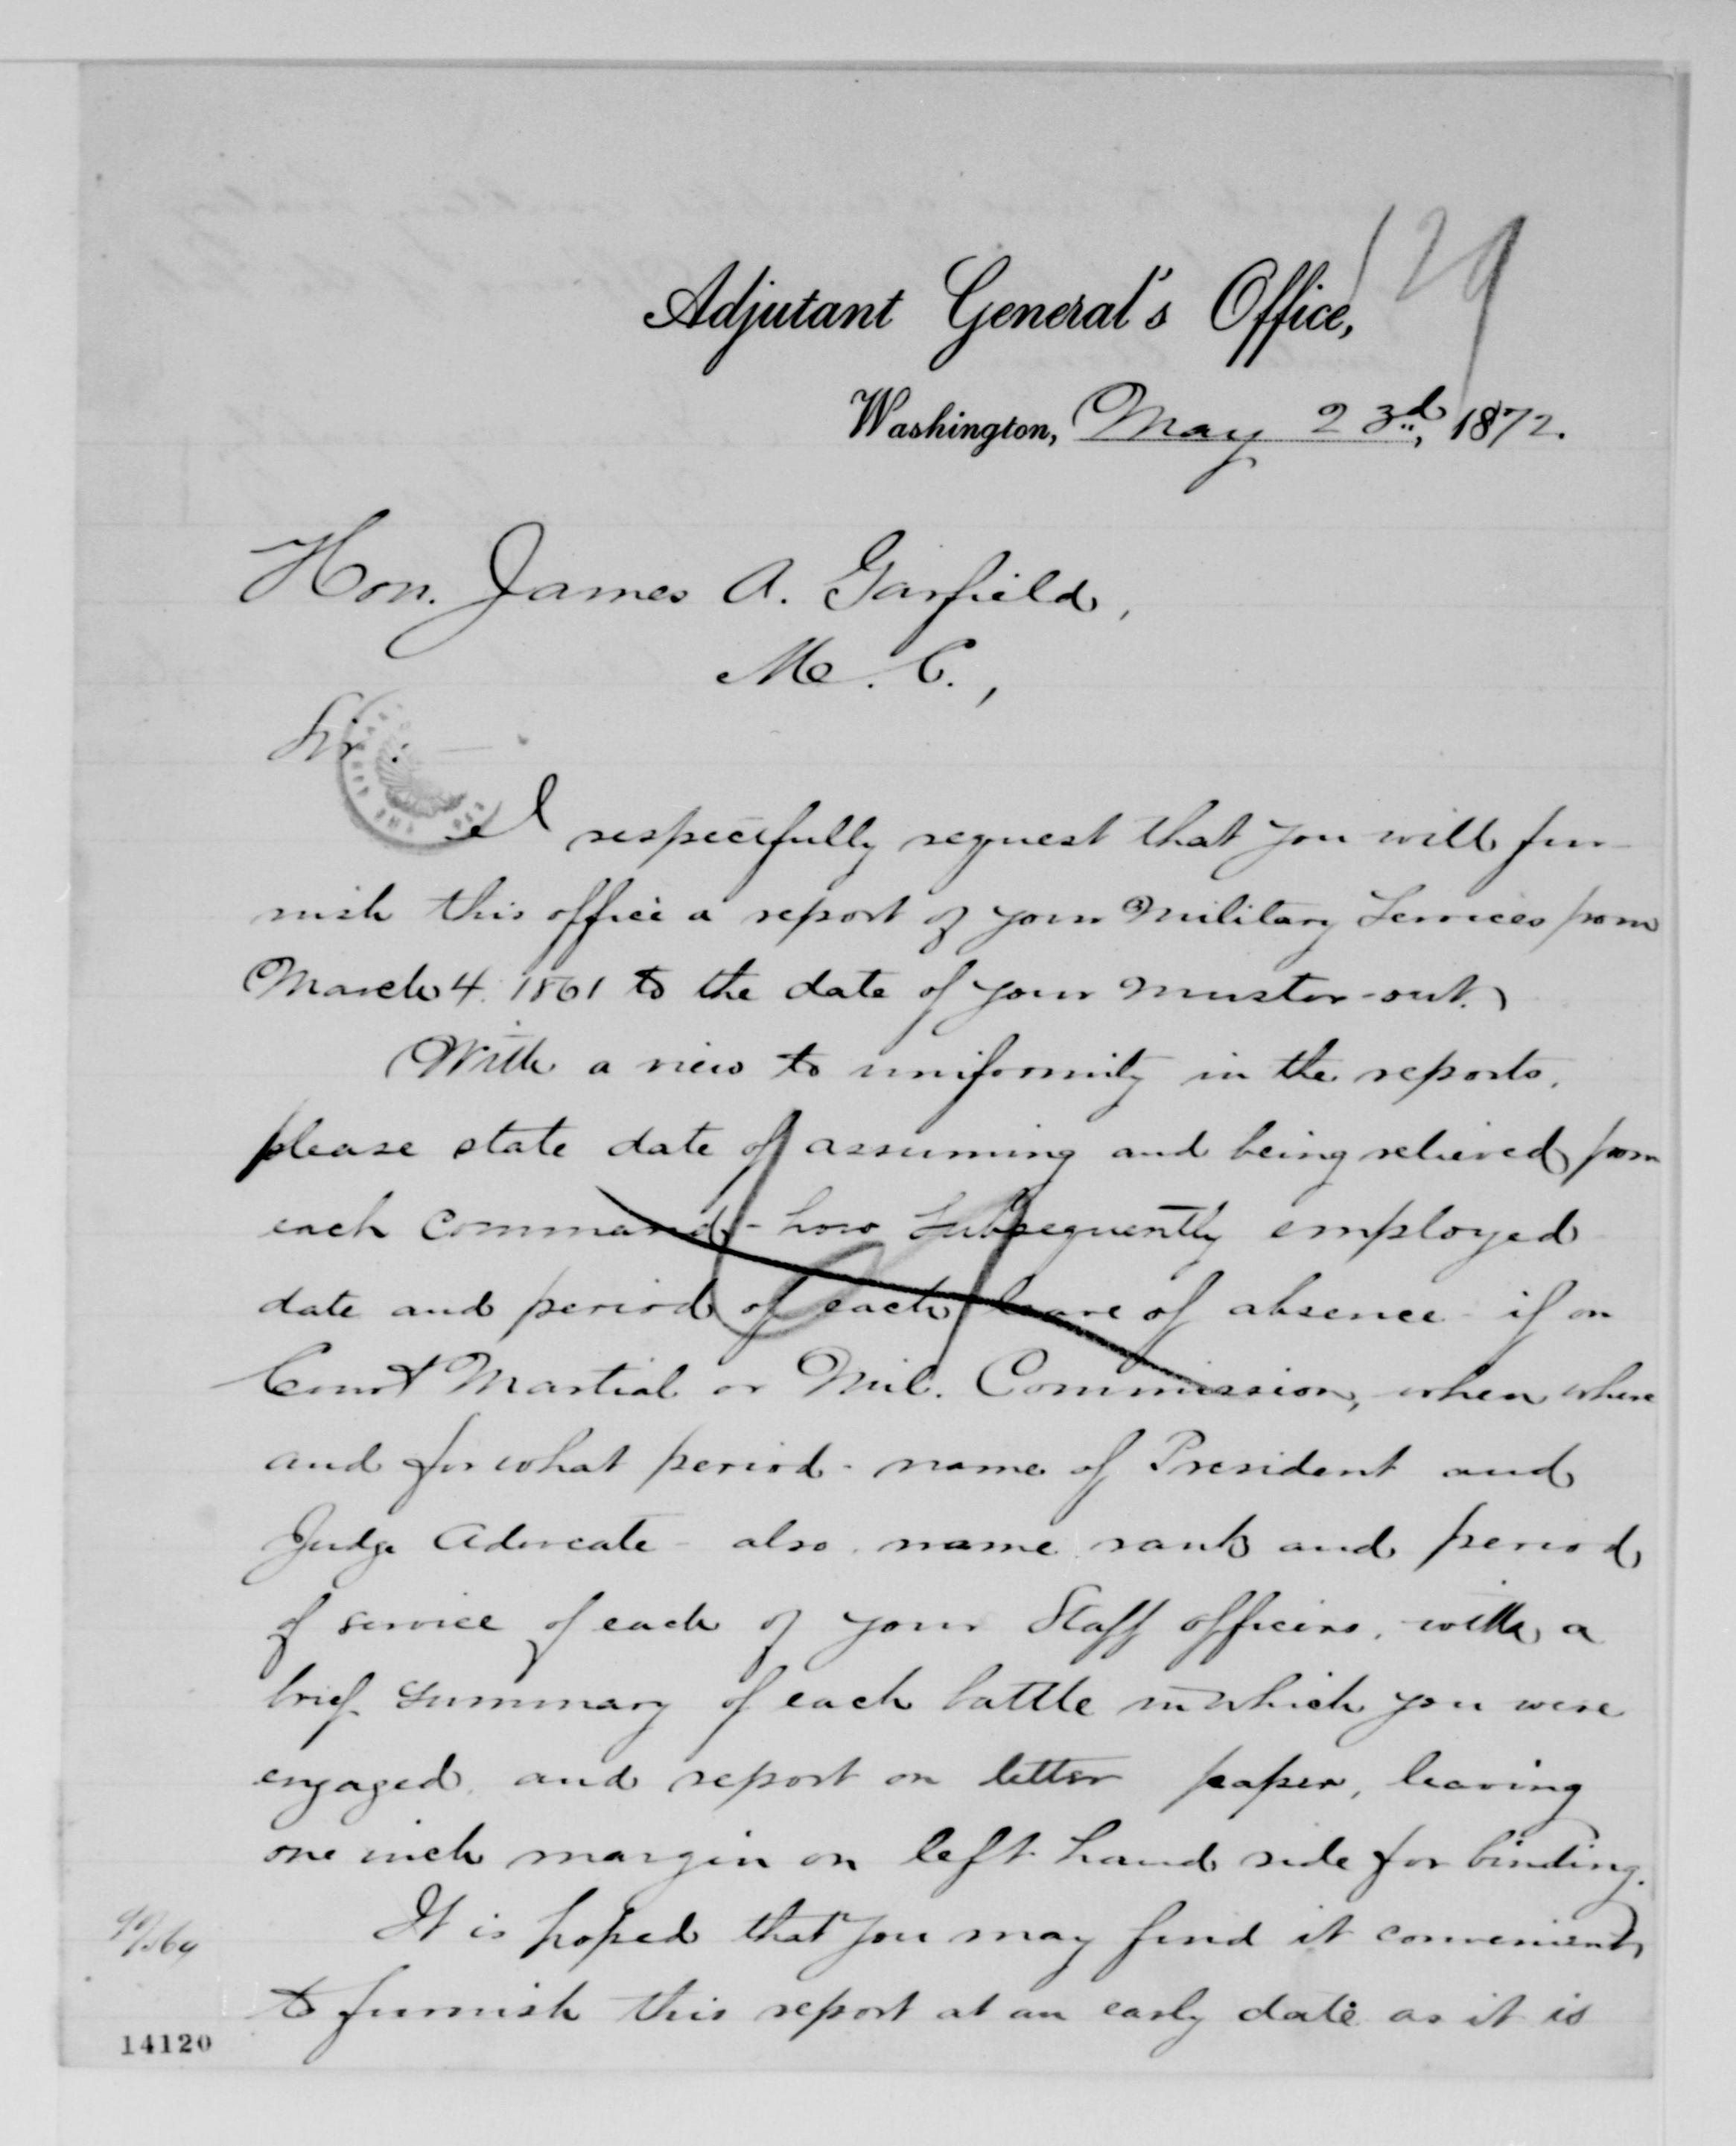 129
Adjutant General's Office,
Washington, May 23d, 1872.
Hon. James A. Garfield,
M. C.,
Sir:
I respectfully request that you will fur-
nish this office a report of your Military Services from
March 4. 1861 to the date of your muster-out.
With a view to uniformity in the reports,
please state date of assuming and being relieved from
each command - how subsequently employed
date and period of each leave of absence - if on
Court Martial or Mil. Commission, when where
and for what period - name of President and
Judge Advocate - also name rank and period
of service of each of your Staff officers, with a
brief summary of each battle in which you were
engaged, and report on letter paper, leaving
one inch margin on left hand side for binding.
It is hoped that you may find it convenient
to furnish this report at an early date as it is
14120